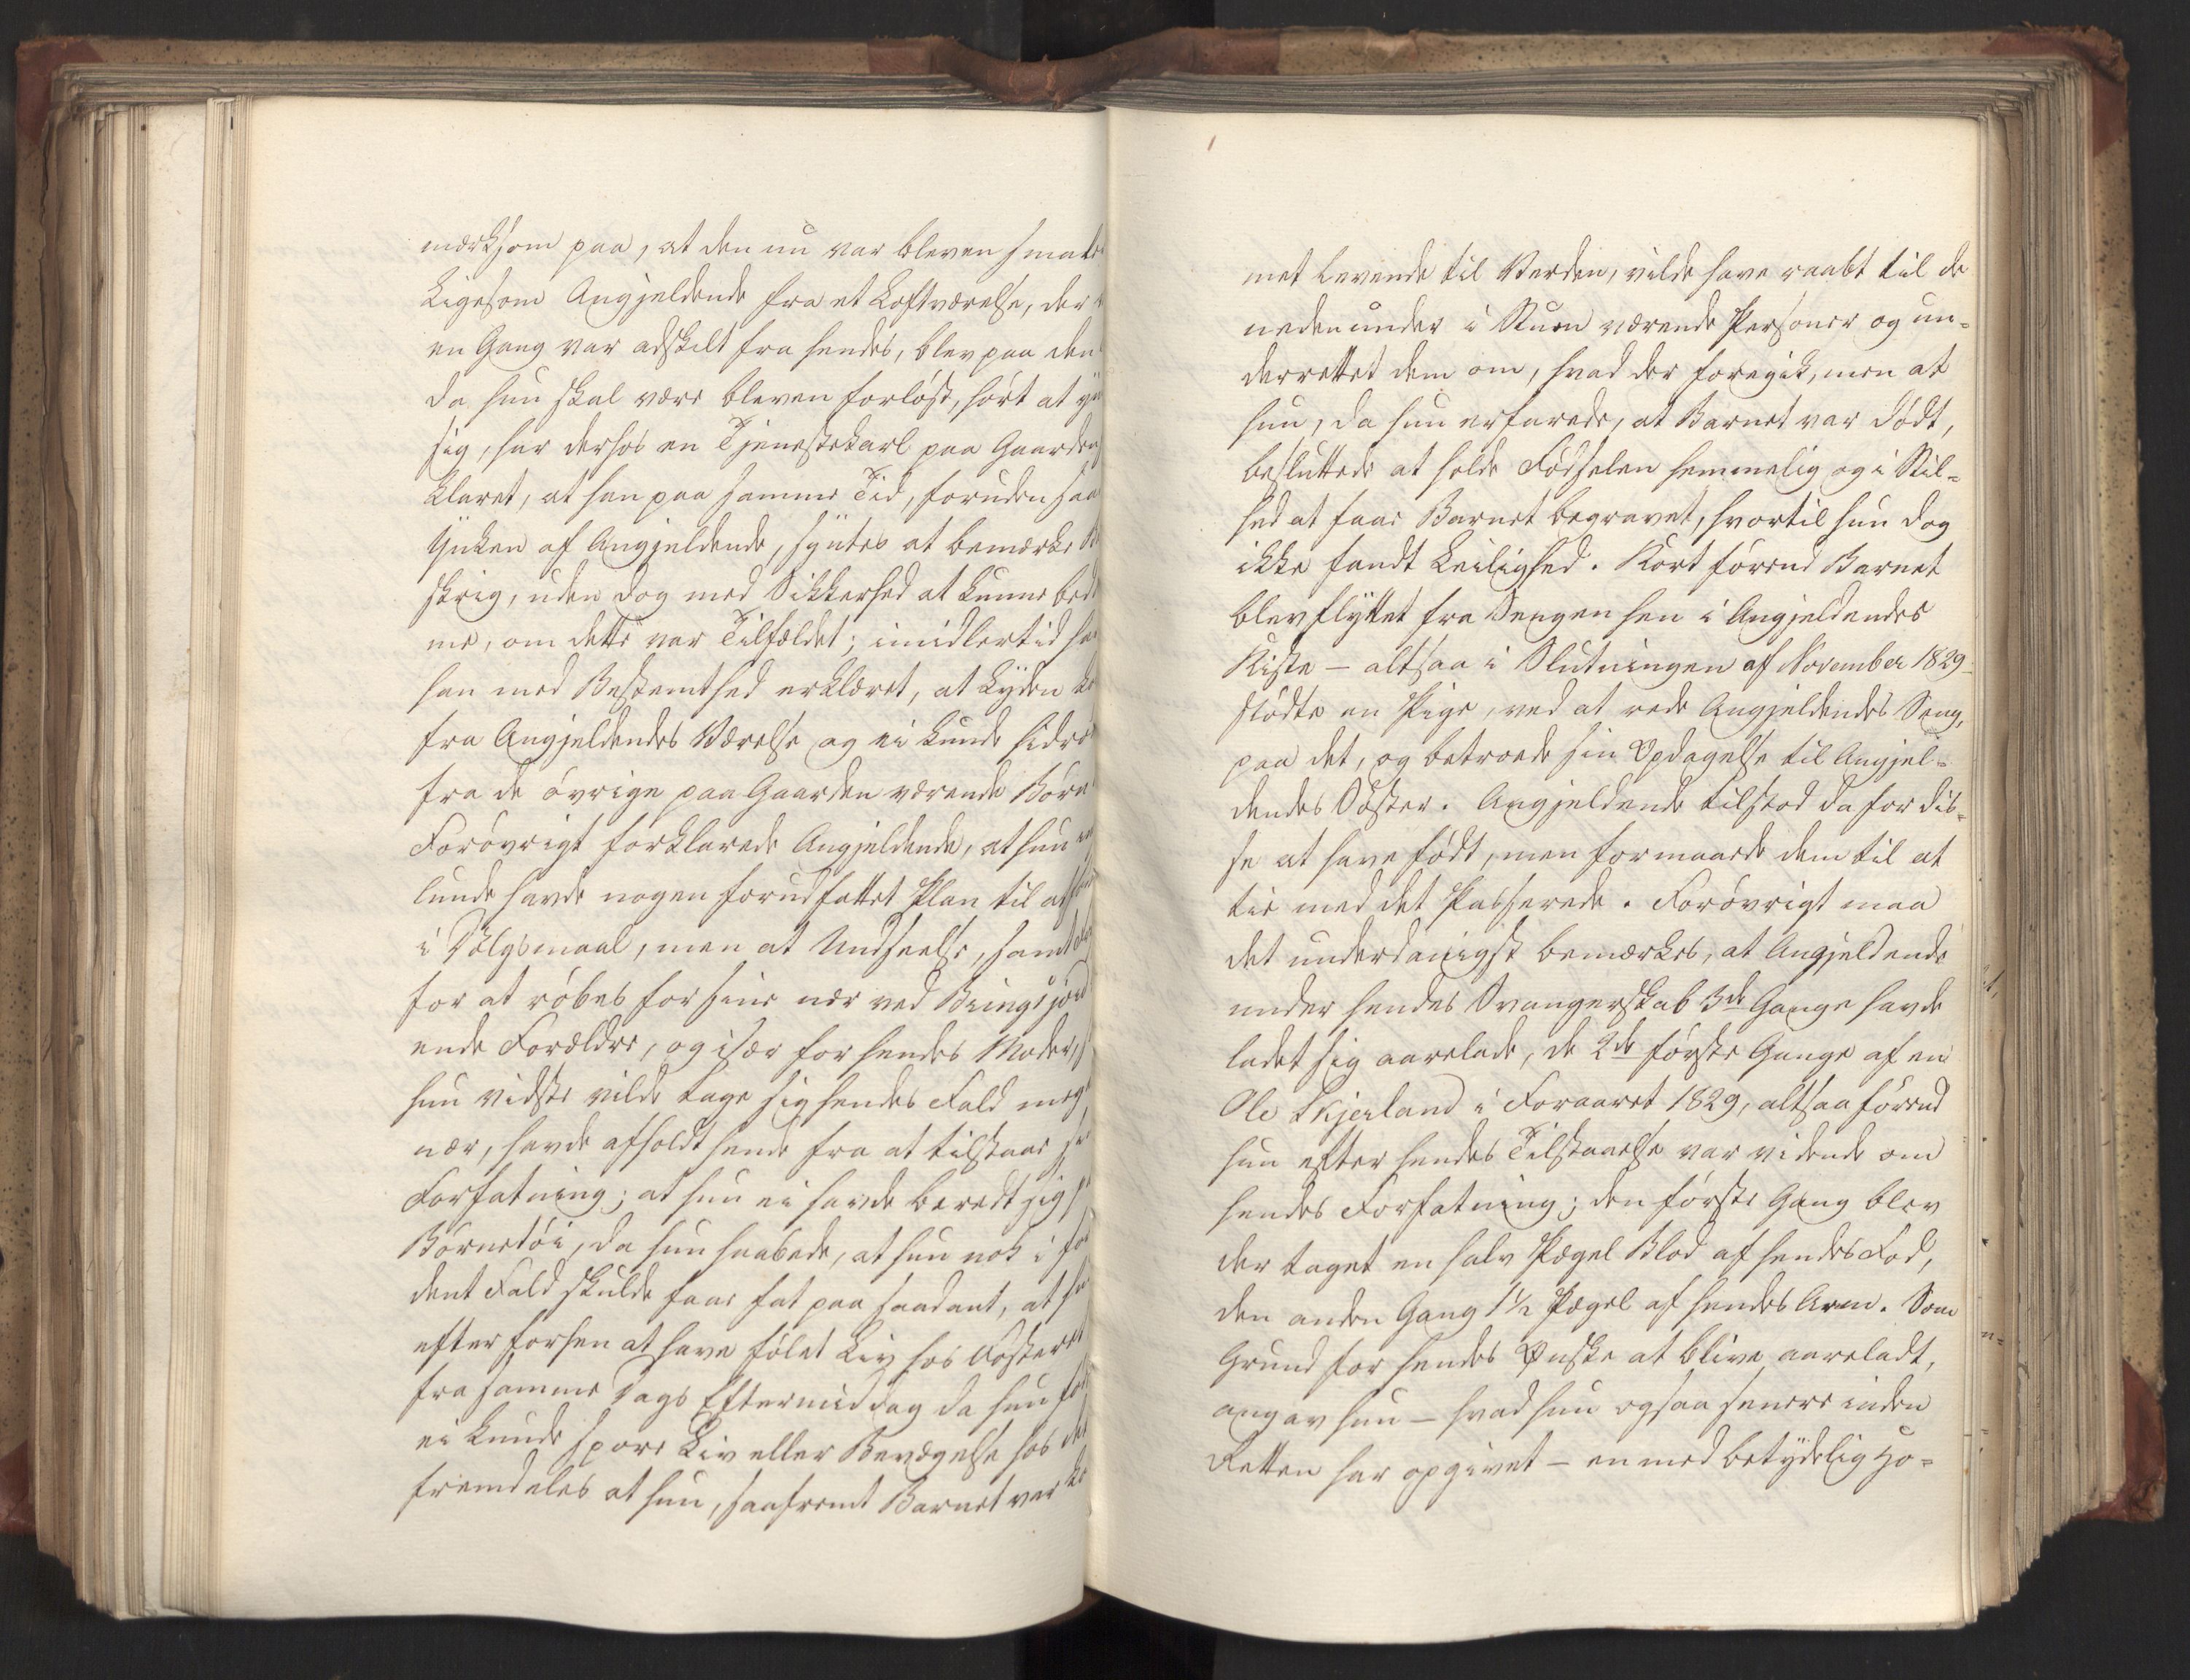 mærksom paa, at den nu var bleven smal
Ligesom Angjeldende fra et Loftværelse, der
en Gang var adskilt fra hendes, blev paa den
da hun skal være bleven forløst, hørt at yn
sig, har derhos en Tjenestekarl paa Gaarden
klaret, at han paa samme Tid, foruden saa
Ynken af Angjeldende, syntes at bemærke
skrig, uden dog med Sikkerhed at kunne bed
me, om dette var Tilfældet; imidlertid ha
han med Bestemthed erklæret, at Lyden
fra Angjeldendes Værelse og ei kunde hidrø
fra de øvrige paa Gaarden værende Børn
Forøvrigt forklarede Angjeldende, at hun
lunde havde nogen forudfattet Plan til at
i Dølgsmaal, men at Undseelse, samt
for at røbes for sine nær ved Bringsjord
ende Forældre, og især for hendes Moder,
hun vidste vilde tage sig hendes Fald meg
nær, havde afholdt hende fra at tilstaae
Forfatning; at hun ei havde beredt sig
Børnetøi, da hun haabede, at hun nok i
dent Fald skulde faae fat paa saadant, at
efter forhen at have følet Liv hos Fosteret
fra samme Dags Eftermiddag da hun fød
ei kunde spore Liv eller Bevægelse hos det
fremdeles at hun, saafremt Barnet var
met levende til Verden, vilde have raabt til de
nedenunder i Stuen værende Personer og un-
derrettet dem om, hvad der foregik, men at
hun, da hun erfarede, at Barnet var dødt,
besluttede at holde Fødselen hemmelig og i Stil-
hed at faae Barnet begravet, hvortil hun dog
ikke fandt Leilighed. Kort førend Barnet
blev flyttet fra Sengen hen i Angjeldendes
Kiste – altsaa i Slutningen af November 1829
stødte en Pige, ved at rede Angjeldendes Seng,
paa det, og betroede sin Opdagelse til Angjel-
dendes Søster. Angjeldende tilstod da for dis-
se at have født, men formaaede dem til at
tie med det Passerede. Forøvrigt maa
det underdanigst bemærkes, at Angjeldende
under hendes Svangerskab 3de Gange havde
ladet sig aarelade, de 2de første Gange af en
Ole Skjerland i Foraaret 1829, altsaa førend
hun efter hendes Tilstaaelse var vidende om
hendes Forfatning; den første Gang blev
der taget en halv Pægel Blod af hendes Fod,
den anden Gang 1½ Pægel af hendes Arm. Som
Grund for hendes Ønske at blive aareladt,
angav hun – hvad hun ogsaa senere inden
Retten har opgivet – en med betydelig Ho-